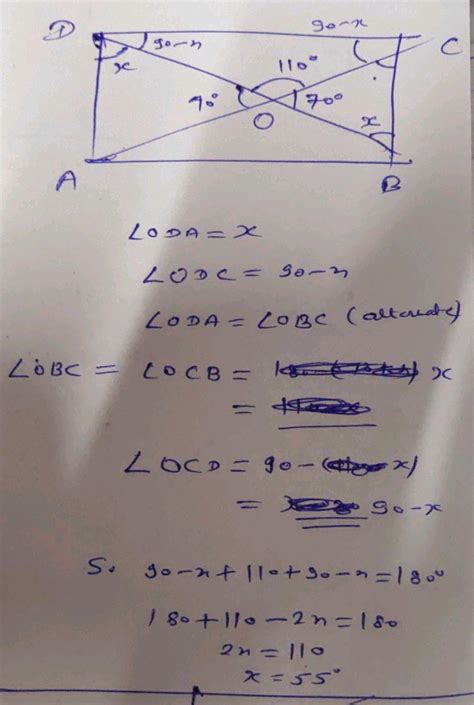 D 90-x 90-x C
x 110°
70° 70°
O x
A B
∠ODA = x
∠ODC = 90-x
∠ODA = ∠OBC (alternate)
∠OBC = ∠OCB = x
=
∠OCD = 90-( x)
= 90-x
So 90-x+110+90-x=180°
180+110-2x=180
2x=110
x=55°